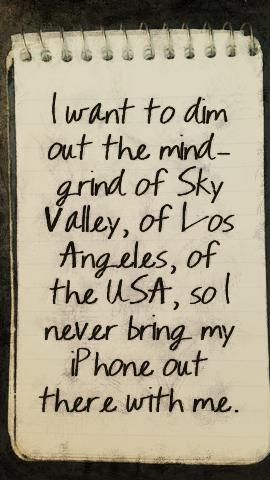 I want to dim
out the mind-
grind of Sky
Valley, of Los
Angeles, of
the USA, so I
never bring my
iPhone out
there with me.